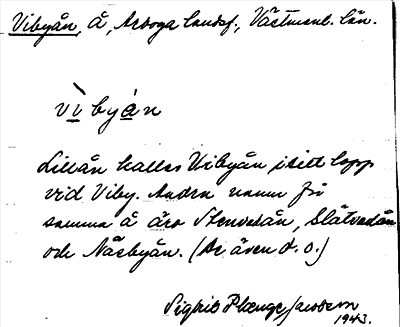 Vibyån, å, Arboga landsf., Västmanl. län.
vìbyán
Lillån kallas Vibyån i sitt lopp
vid Viby. Andra namn för
samma å äro Stenvadån, Slätvadån
och Näsbyån. (Se även d. o.)
Sigrid Plænge Jacobson
1943.